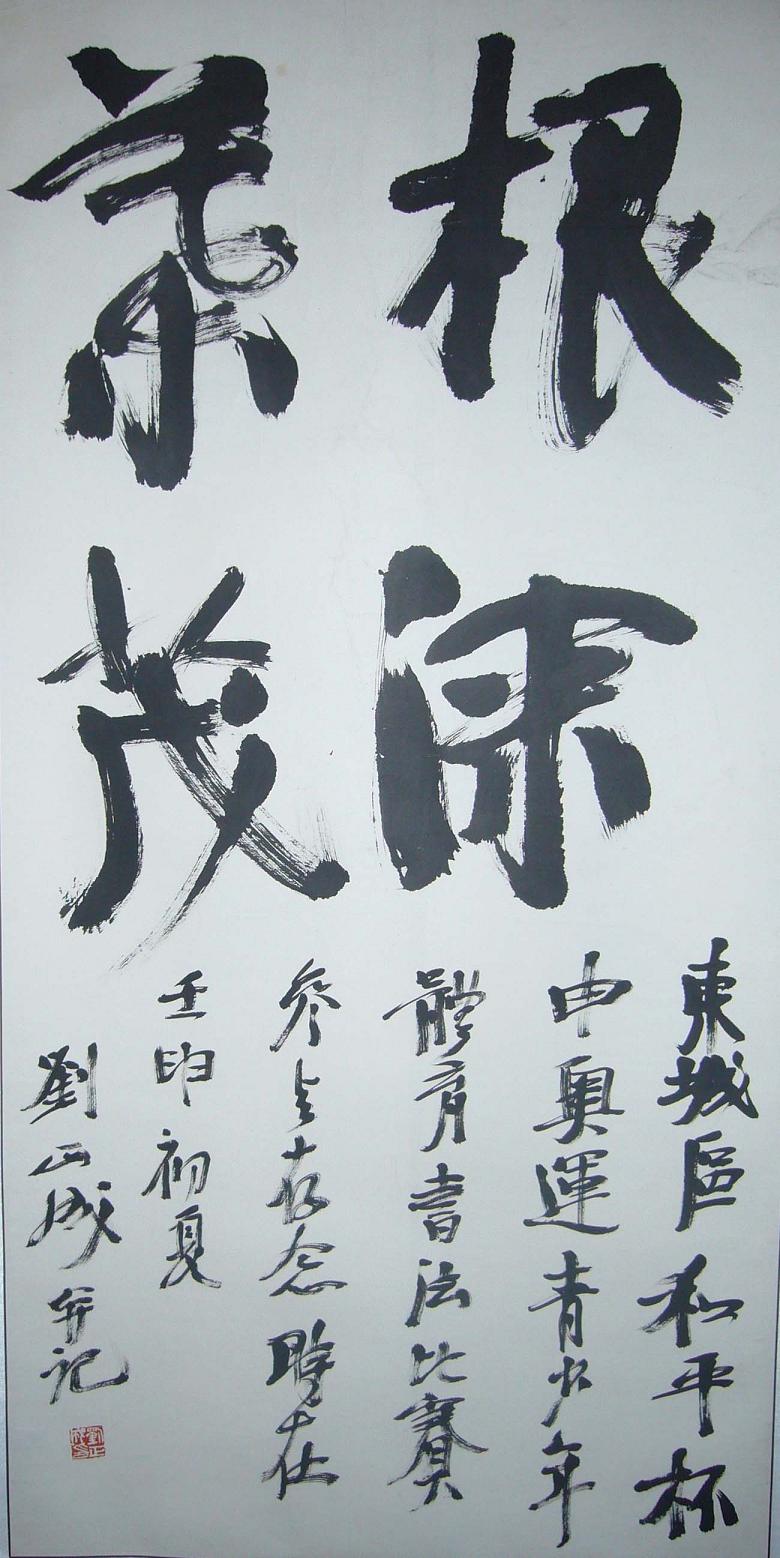 根深
葉茂
東城區和平杯
申奧運青少年
體育書法比賽
參与存念時在
壬申初夏
劉正成并記